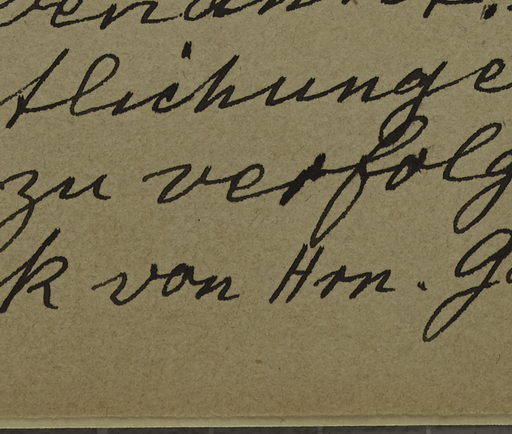 tlichunge
zu verfolg
k von Hrn. G